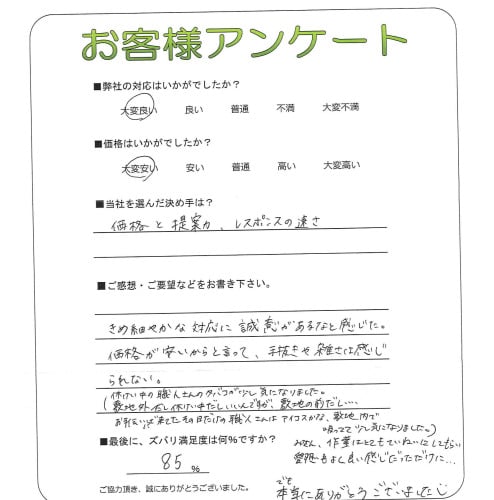 お客様アンケート
■弊社の対応はいかがでしたか？
大変良い 良い 普通 不満 大変不満
■価格はいかがでしたか？
大変安い 安い 普通 高い 大変高い
■当社を選んだ決め手は？
価格と提案力、レスポンスの速さ
■ご感想・ご要望などをお書き下さい。
きめ細やかな対応に誠意があるなと感じた。
価格が安いからと言って、手抜きや雑さは感じ
られない。
(休けい中の職人さんのタバコが少し気になりました。
敷地外だし休けい中だしいいんですが、敷地の前だし…
お手伝いで来たその日だけの職人さんはアイコスかな、敷地内で
吸ってて少し気になりました。)
みなさん、作業はとてもていねいにしてもらい
愛想もよく良い感じだっただけに…
■最後に、ズバリ満足度は何%ですか？
85 %
でも
本当にありがとうございました
ご協力頂き、誠にありがとうございました。